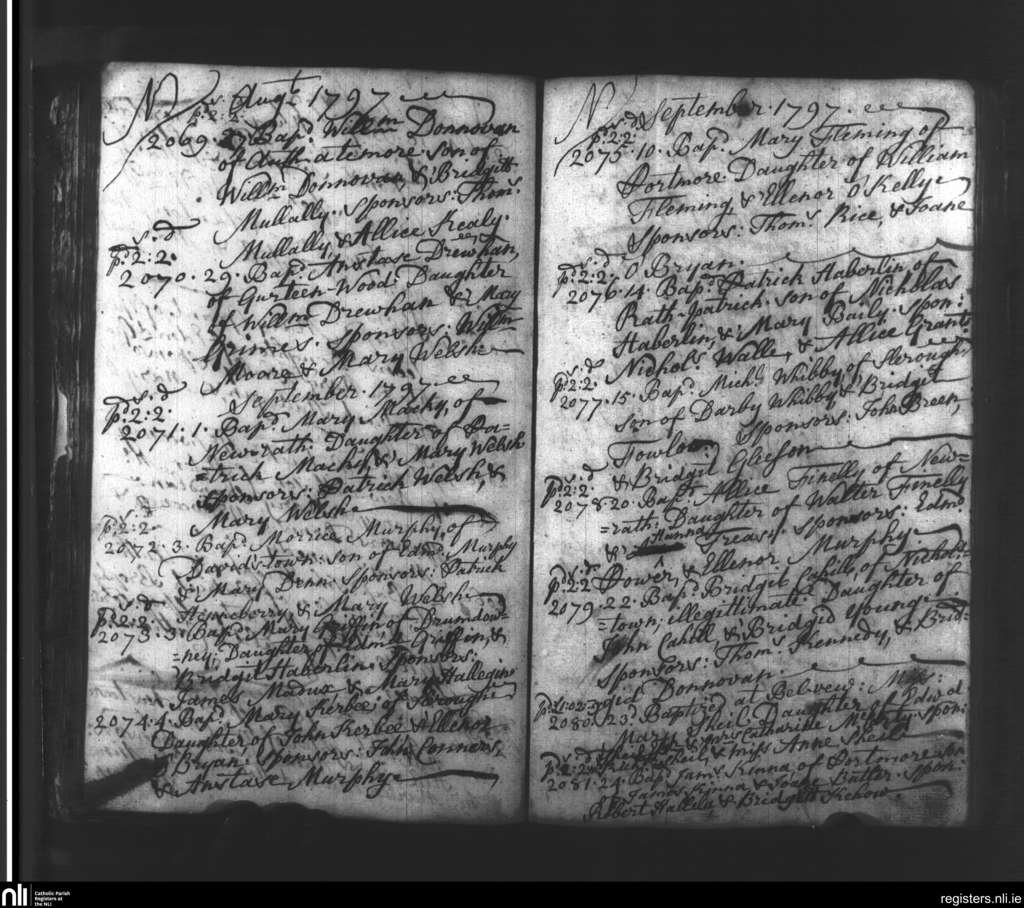 No. Augt. 1797
s. d
pd. 2:2.
2069. 27. Bapd. Willm Donnovan
of Auth-atemore. son of
Willm Donnovan, & Bridgitt
Mullally. sponsors: Thoms.
Mullally, & Allice Kealy.
s. d
pd. 2:2.
2070. 29. Bapd. Anstase Drewhan,
of Gurteen-Wood. Daughter
of Willm Drewhan & Mary
Grimes. sponsors: Willm
Moore & Mary Welsh
September. 1797.
s. d
pd. 2:2.
2071: 1. Bapd. Mary Macky, of
Newrath. Daughter of Pa=
=trick Macky, & Mary Welsh
sponsors: Patrick Welsh, &
Mary Welsh
s. d
pd. 2:2.
2072. 3. Bapd. Morrice Murphy, of
Davidstown: son of Edmd. Murphy
& Mary Benn. sponsors: Patrick
Henneberry & Mary Welsh
s. d
pd. 2:2.
2073: 3. Bapd. Mary Griffin, of Drumdow=
=ney; Daughter of Edmd. Griffin, &
Bridgit Haberlin. sponsors:
James Madux & Mary Hallegin
2074: 4. Bapd. Mary Kerbee of Slerough
Daughter of John Kerbee & Ellenor
Bryan. sponsors: John Connors,
& Anstase Murphy
No. September. 1797.
s. d
pd. 2:2.
2075. 10. Bapd. Mary Fleming of
Portmore. Daughter of William
Fleming, & Ellenor O Kelly
Sponsors: Thoms. Rice, & Joane
O Bryan.
s. d
pd. 2:2.
2076. 14. Bapd. Patrick Haberlin, of
Rath-patrick. son of Nicholas
Haberlin, & Mary Baily. Spon:
Nichols. Walle, & Allice Grant
s. d
pd. 2:2.
2077. 15. Bapd. Michl. Whibby of Slerough
son of Darby Whibby & Bridgit
Fowloo. Sponsors: John Breen,
& Bridgit Gleeson
s. d
pd. 2:2.
2078. 20. Bapd. Allice Finelly of New=
=rath: Daughter of Walter Finelly
& Hannora Treasy. sponsors: Edmd
Power, & Ellenor Murphy
s. d
pd. 2:2
2079. 22. Bapd. Bridgit Cahill, of Nichols=
=town; illegittimate Daughter of
John Cahill, & Bridgid Younge
Sponsors: Thoms. Kennedy, & Brid=
gid Donnovan.
2080. 23d. Baptized at Bel-vew: Miss:
Maryn Sheil. Daughter of Edwd.
Sheil & Mrs. Catharine Meany. Spon:
Sheil, & Miss Anne Sheil
s. d
pd. 2:2
2081. 24. Bapd. Jams. Kinna of Portmore. son
James Kinna & Joane Butler. Spon:
Robert Hallein, & Bridgitt Kehow
nli
Catholic Parish
Registers at
the NLI
registers.nli.ie